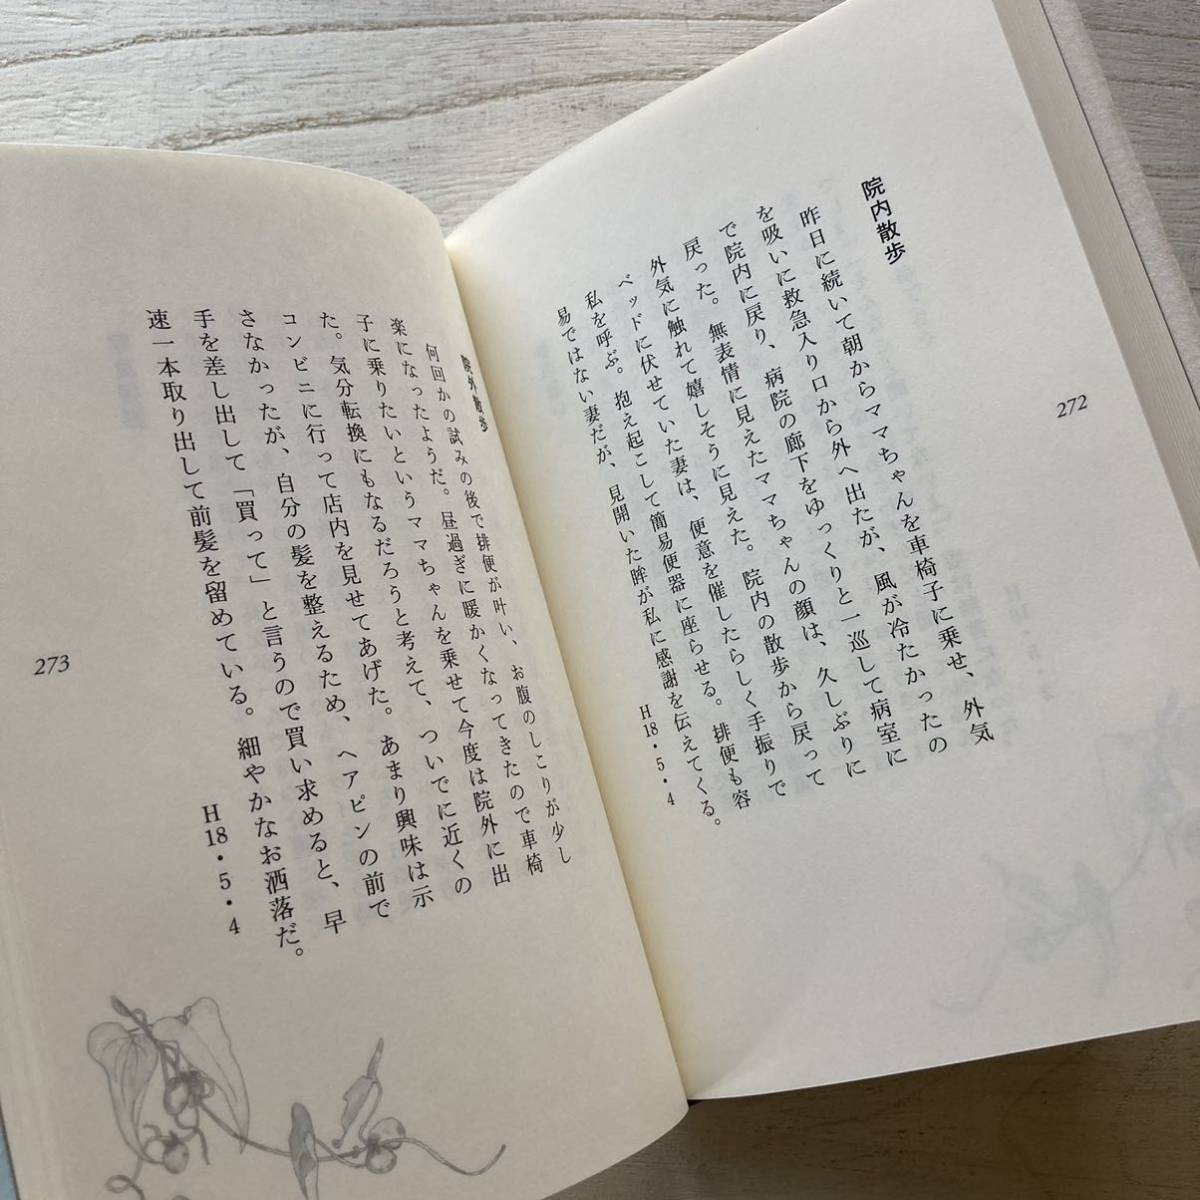 院内散歩
昨日に続いて朝からママちゃんを車椅子に乗せ、外気
を吸いに救急入り口から外へ出たが、風が冷たかったの
で院内に戻り、病院の廊下をゆっくりと一巡して病室に
戻った。無表情に見えたママちゃんの顔は、久しぶりに
外気に触れて嬉しそうに見えた。院内の散歩から戻って
ベッドに伏せていた妻は、便意を催したらしく手振りで
私を呼ぶ。抱え起こして簡易便器に座らせる。排便も容
易ではない妻だが、見開いた眸が私に感謝を伝えてくる。
H18・5・4
272
院外散歩
何回かの試みの後で排便が叶い、お腹のしこりが少し
楽になったようだ。昼過ぎに暖かくなってきたので車椅
子に乗りたいというママちゃんを乗せて今度は院外に出
た。気分転換にもなるだろうと考えて、ついでに近くの
コンビニに行って店内を見せてあげた。あまり興味は示
さなかったが、自分の髪を整えるため、ヘアピンの前で
手を差し出して「買って」と言うので買い求めると、早
速一本取り出して前髪を留めている。細やかなお洒落だ。
H18・5・4
273